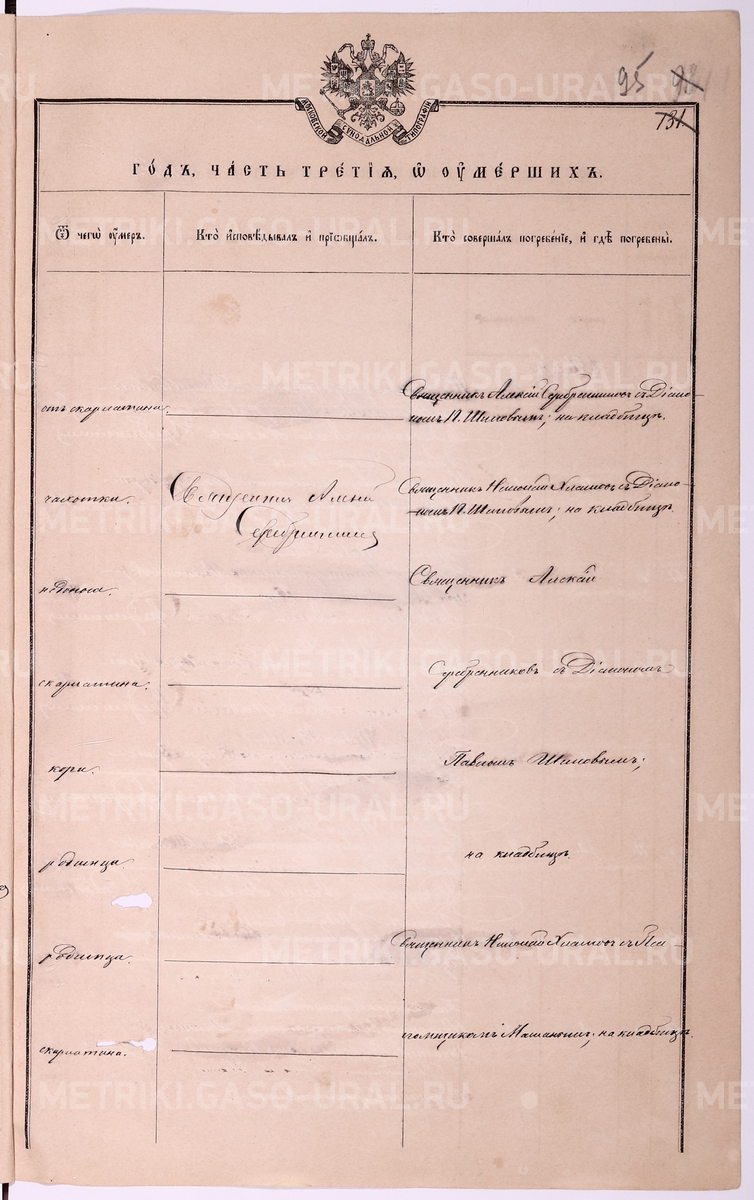 95 93
131
МОСКОВСКОЙ СѴНОДАЛЬНОЙ ТИПОГРАФІИ
ГО́ДЪ, ЧА́СТЬ ТРЕ́ТІѦ, Ѡ҆ ОУ҆МЕ́РШИХЪ.
Ѿ чегѡ̀ ᲂу҆́меръ.
Кто̀ и҆сповѣ́дывалъ и҆ прїѡбща́лъ.
Кто̀ соверша́лъ погребе́нїе, и҆ гдѣ̀ погребены̀.
отъ скарлатины
Священникъ Алексій Серебренниковъ съ Діако-
номъ П. Шиловымъ; на кладбищѣ.
чахотки.
Священникъ Алексій
Серебренников
Священникъ Николай Хламовъ съ Діако-
номъ П. Шиловымъ; на кладбищѣ.
недоноса.
Священникъ Алексій
скарлатина.
Серебренниковъ съ Діакономъ
кори.
Павломъ Шиловымъ;
родимца.
на кладбищѣ.
родимца.
Священникъ Николай Хламовъ съ Пса-
ломщикомъ; на кладбищѣ.
скарлатина.
METRIKI.GASO-URAL.RU